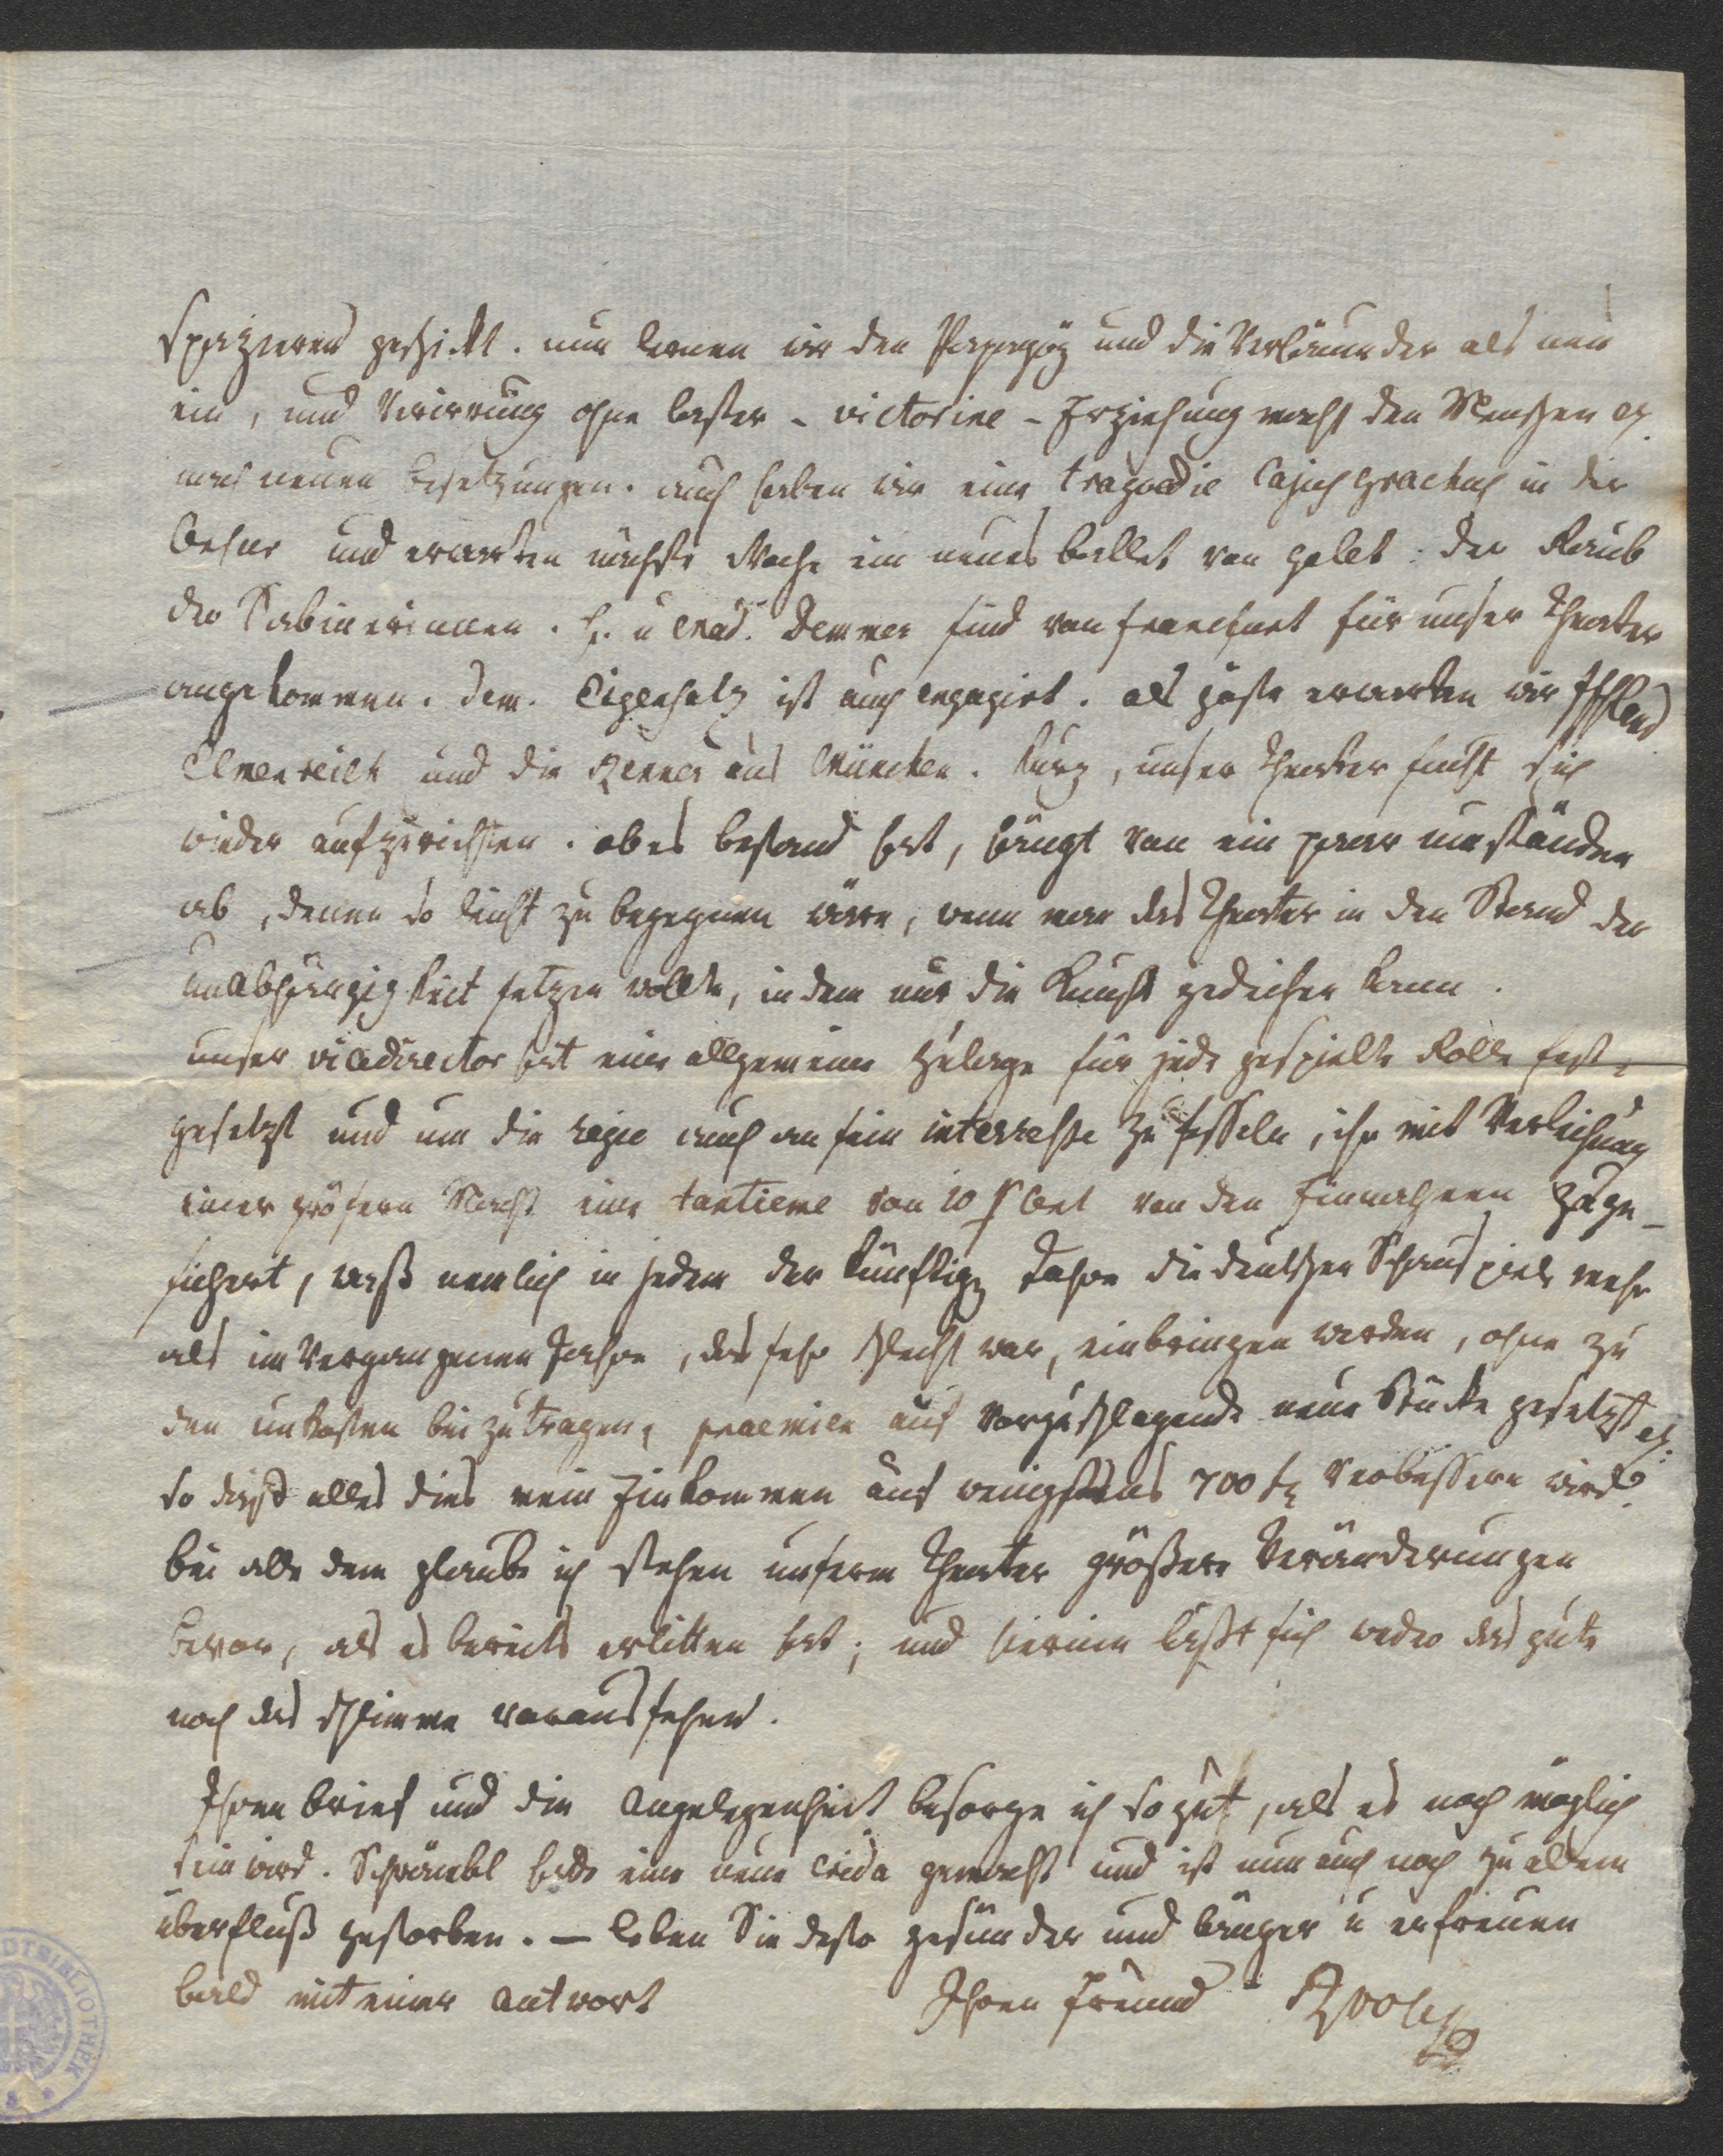 spazieren geschikt. nun lernen wir den Papagoy und die Verläumder als neu
ein, und Verirrung ohne Laster - victorine - Erziehung macht den Menschen etc.
mit neuen Besetzungen. auch haben wir eine tragoedie Cajus Gracchus in der
Lehre und erwarten nächste Woche ein neues ballet von gallet: der Raub
der Sabinerinnen. H. u Mad. Demmer sind von frankfurt für unser Theater
angekommen. Dem. Eigensatz ist auch engagirt. als gäste erwarten wir Iffland
Elmenreich und die Renner aus München. kurz, unser Theater sucht sich
wieder aufzurichten. ob es bestand hat, hängt von ein paar umständen
ab, denen so leicht zu begegnen wäre, wenn man das Theater in den Stand der
unabhängigkeit setzen wollte, in dem nur die Kunst gedeihen kann.
unser vicedirector hat eine allgemeine zulage für jede gespielte Rolle fest-
gesetzt und um die regie auch an sein interresse zu fesseln, ihr mit Verleihung
einer größern Macht eine tantieme von 10 pCent von den Einnahmen zuge-
sichert, was nemlich in jedem der künftign Jahre die deutschen Schauspiele mehr
als im vergangenen Jahre, das sehr schlecht war, einbringen werden, ohne zu
den unkosten beizutragen, praemien auf vorzuschlagende neue Stücke gesetzt etc.
so daß alles dies mein Einkommen auf wenigstens 700 f verbessern wird.
bei alle dem glaube ich stehen unserm Theater größere Veränderungen
bevor, als es bereits erlitten hat; und hierinn läßt sich weder das gute
noch das schlimme voraussehen.
Ihren brief und die angelegenheit besorge ich so gut, als es noch möglich
sein wird. hatte eine neue Crida gemacht und ist nun auch noch zu allem
überfluß gestorben. — leben Sie desto gesünder und länger u erfreuen
bald mit einer antwort Ihren Freund